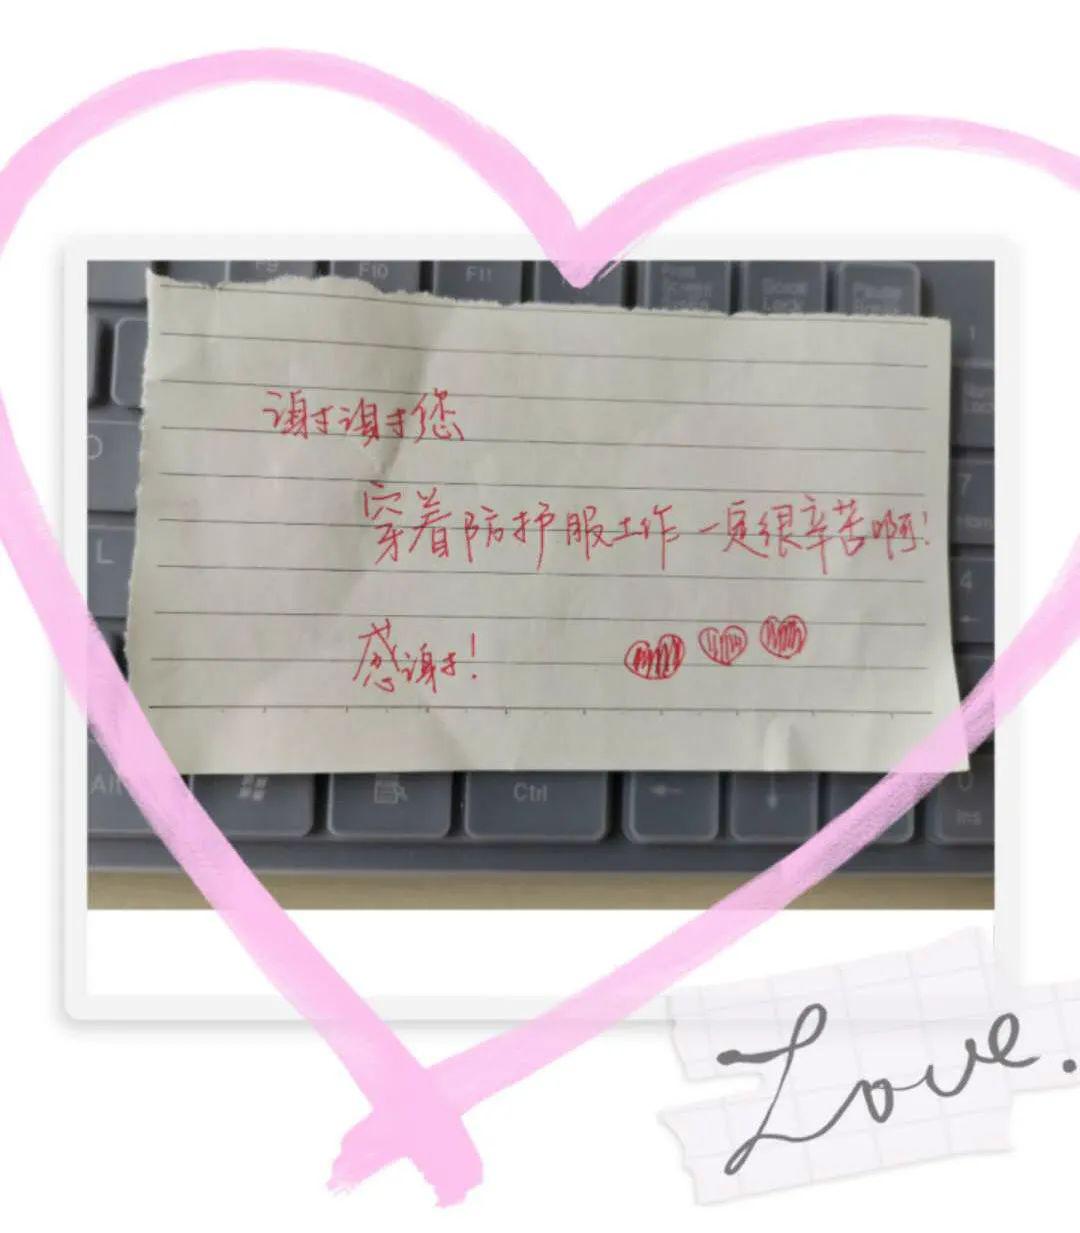 F9 F10 F11
Print Screen
Scroll Lock
Pause Break
谢谢您
穿着防护服工作一定很辛苦啊!
感谢!
1
Num Lock
O
7
Home
L
4
Alt
Ctrl
0
Ins
Love.